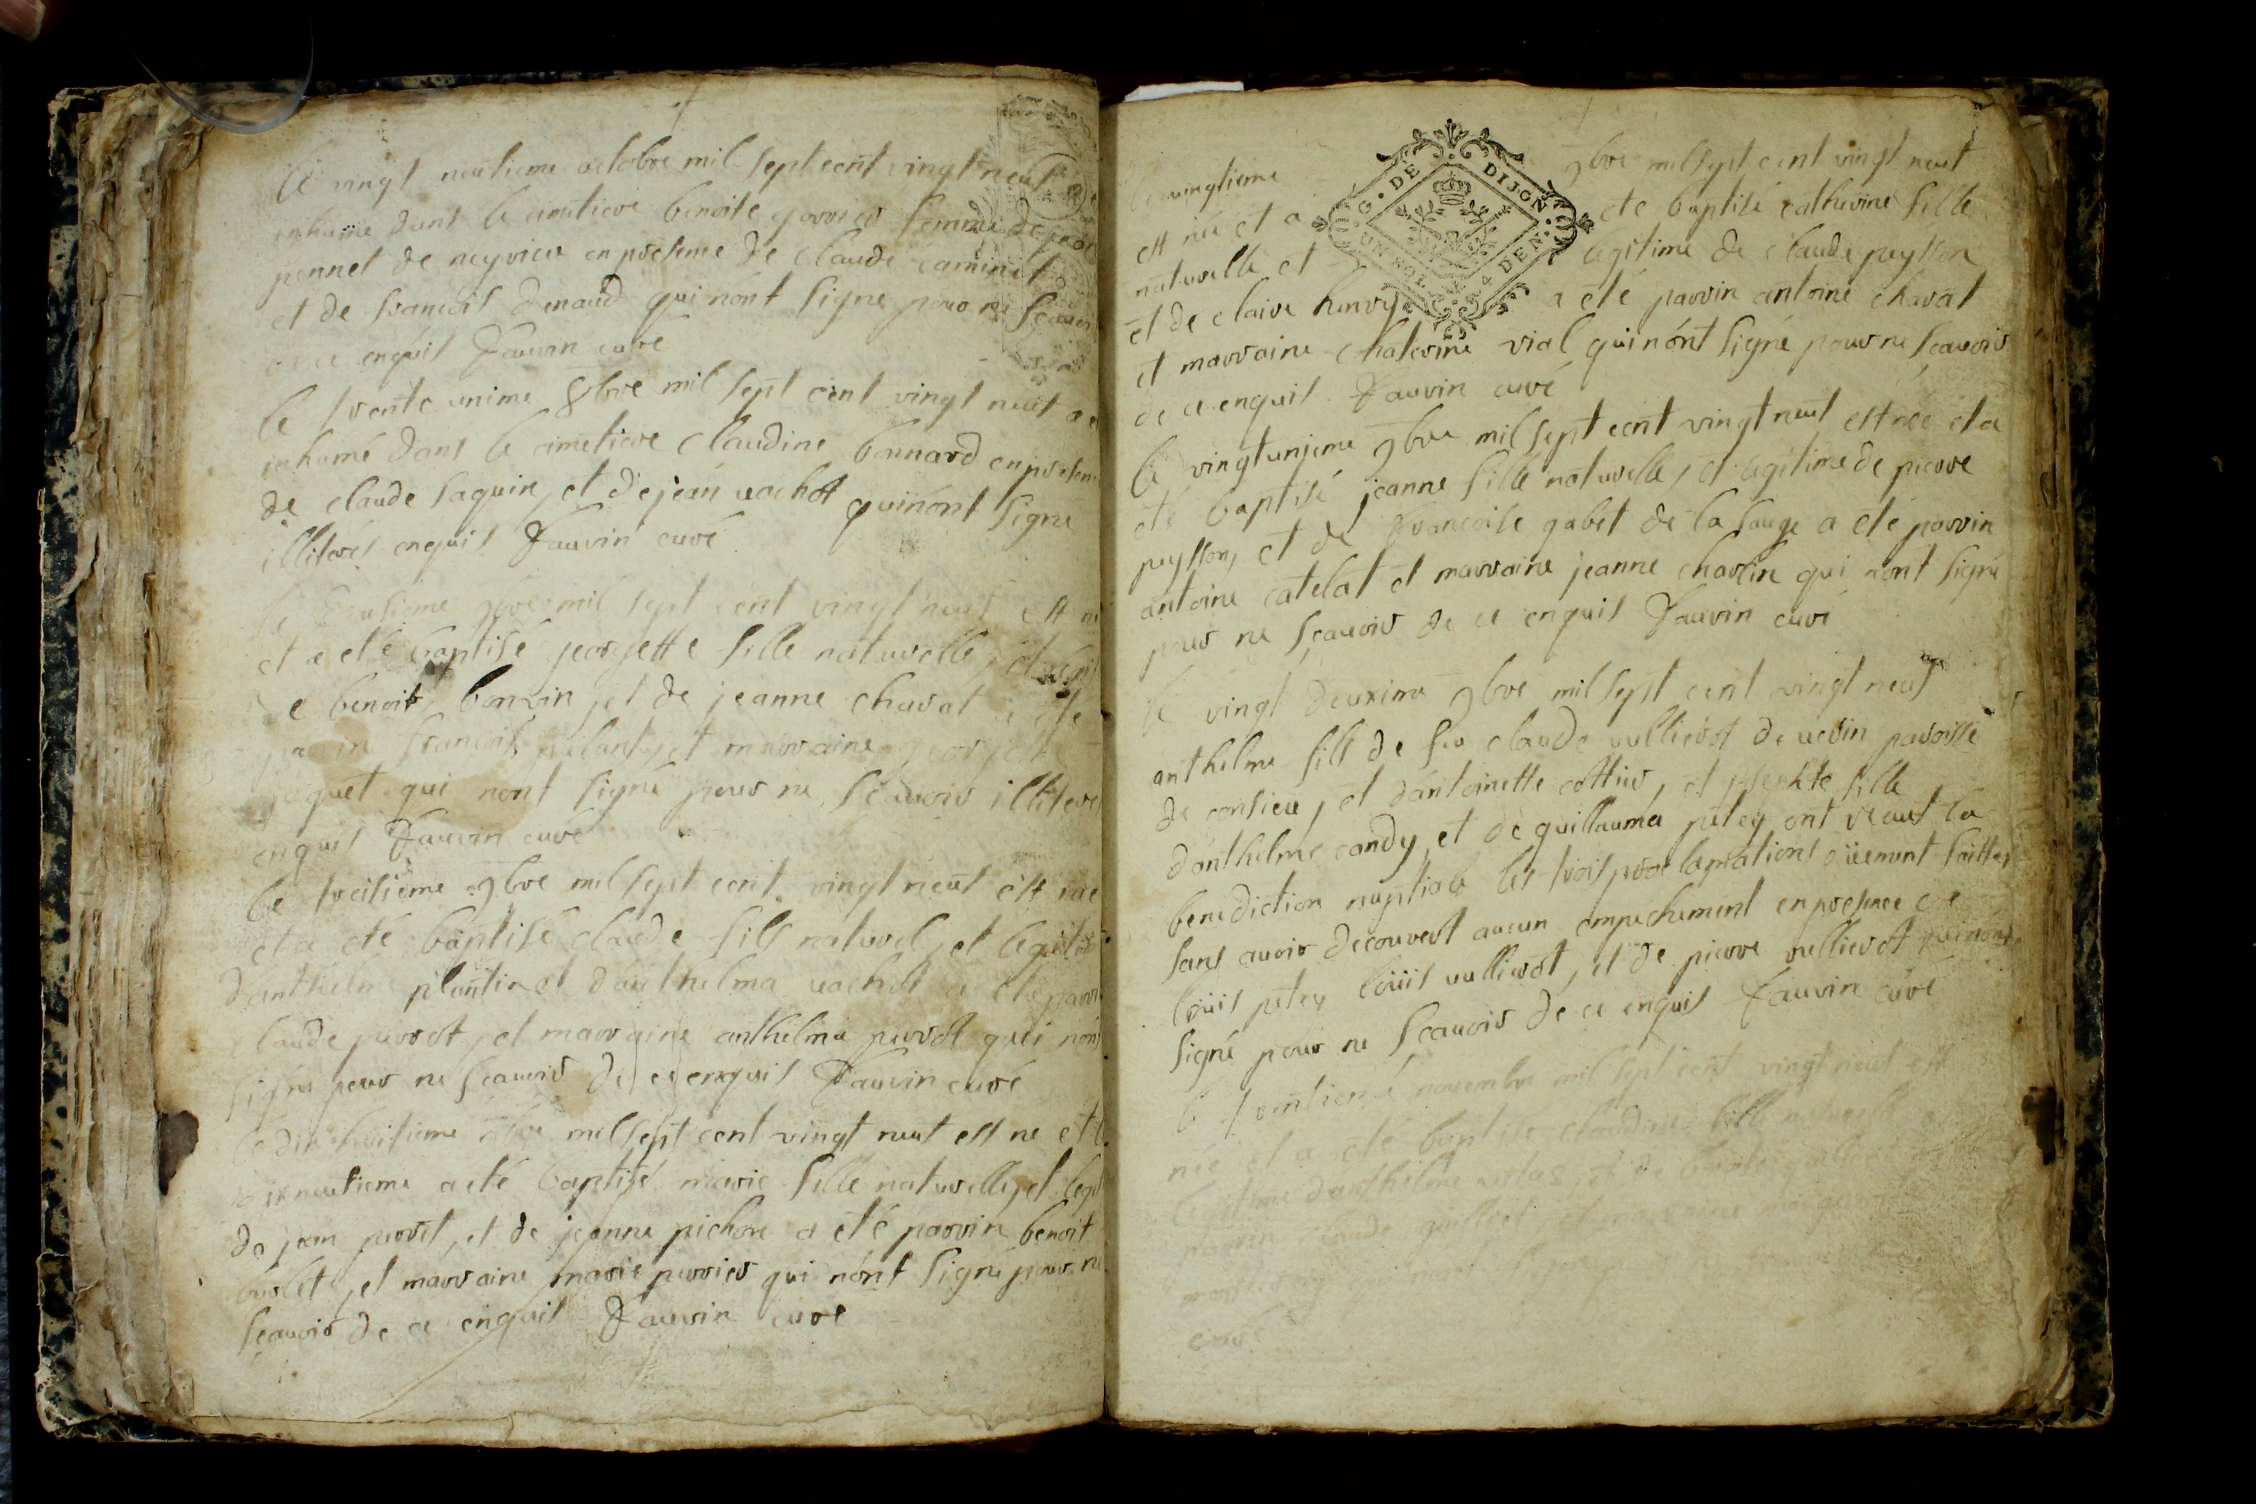 le vingt neutieme octobre mil sept cent vingt neuf a e
inhumé dans le cimetiere benoite gorrier femme de jean
ponnet de neyrieu en presence de claude caminet
et de francois denaud qui nónt signe pour ne scavoir
de ce enquis Fauvin curé
le trente unime 8bre mil sept cent vingt neuf a e
inhumé dans le cimetiere claudine bonnard en presen
de claude saquin, et de jean vachot quinónt signe
illiteres enquis Fauvin curé
le 9bre mil sept cent vingt neuf est ne
et a eté baptisé jeorjette fille naturelle, et legit
e benoit bonvin, et de jeanne chavat a eté
parrin francois et marraine georjette
jaquet qui nont signé pour ne scavoir illitere
enquis Fauvin curé
le treisieme 9bre mil sept cent vingt neuf est né
et a eté baptisé claude fils naturel, et legiti
danthelme plantin et danthelma vachot a eté parri
claude perrot, et marraine anthelma perrot qui nón
signe pour ne scavoir de ce enquis Fauvin curé
le dix huitieme 9bre mil sept cent vingt neut est ne et l
dixneutieme a eté baptisé marie fille naturelle, et legi
de jean perret, et de jeanne pichon a eté parrin benoit
burlet, et marraine marie perrier qui nónt signé pour ne
scavoir de ce enquis Fauvin curé
G. DE DIJON
UN SOL 4 DEN.
le vingtieme 9bre mil sept cent vingt neut
est née et a eté baptisé catherine fille
naturelle et legitime de claude peysson
et de claire henry a eté parrin antoine chavat
et marraine chaterine vial quinónt signé pour ne scavoir
de ce enquis Fauvin curé
le vingtunieme 9bre mil sept cent vingt neut est née et a
eté baptisé jeanne fille naturelle, et legitime de pierre
peysson, et de francoise gabet de la sauge a eté parrin
antoine catelat et marraine jeanne charlin qui nont signé
pour ne scavoir de ce enquis Fauvin curé
le vingt deuxime 9bre mil sept cent vingt neuf
anthelme fils de feu claude vullierot de vervin paroisse
de consieu, et dántoinette cottier, et fille
dánthelme candy, et de guillauma petey ont receut la
benediction nuptiale les trois proclamations düement faittes
sans avoir decouvert aucun empechement en presence de
loüis petey loüis vullierot, et de pierre vullierot quinont
signé pour ne scavoir de ce enquis Fauvin curé
le trentieme novembre mil sept cent vingt neut est
née et a eté baptisé claudine fille naturelle et
legitime danthelme et de benoite
parrin claude et marraine
curé